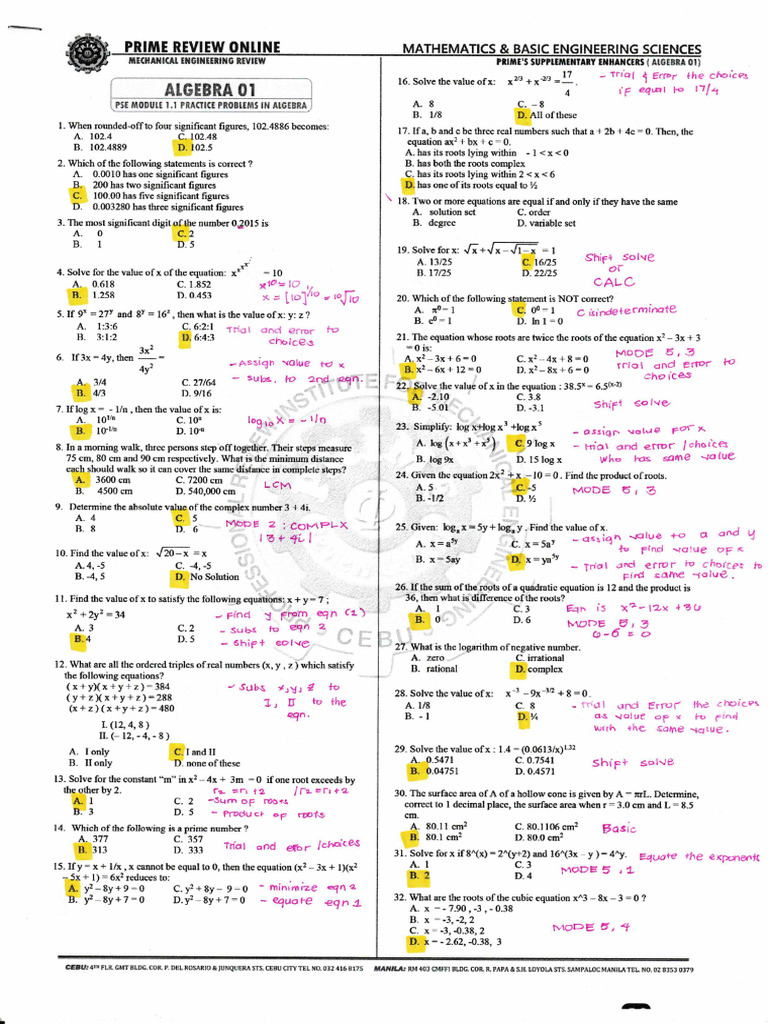 PRIME REVIEW ONLINE
MECHANICAL ENGINEERING REVIEW
MATHEMATICS & BASIC ENGINEERING SCIENCES
PRIME'S SUPPLEMENTARY ENHANCERS ( ALGEBRA 01)
ALGEBRA 01
PSE MODULE 1.1 PRACTICE PROBLEMS IN ALGEBRA
1. When rounded-off to four significant figures, 102.4886 becomes:
A. 102.4 C. 102.48
B. 102.4889 D. 102.5
2. Which of the following statements is correct ?
A. 0.0010 has one significant figures
B. 200 has two significant figures
C. 100.00 has five significant figures
D. 0.003280 has three significant figures
3. The most significant digit of the number 0.2015 is
A. 0 C. 2
B. 1 D. 5
4. Solve for the value of x of the equation: x^x^x^x = 10
A. 0.618 C. 1.852
B. 1.258 D. 0.453
x^10 = 10
x = [10]^1/10 = 10√10
5. If 9^x = 27^y and 8^y = 16^z , then what is the value of x: y: z ?
A. 1:3:6 C. 6:2:1
B. 3:1:2 D. 6:4:3
Trial and error to
choices
6. If 3x = 4y, then 3x²/4y² =
A. 3/4 C. 27/64
B. 4/3 D. 9/16
- Assign value to x
- subs. to 2nd eqn.
7. If log x = - 1/n , then the value of x is:
A. 10^1/n C. 10^n
B. 10^-1/n D. 10^-n
log10 X = - 1/n
8. In a morning walk, three persons step off together. Their steps measure
75 cm, 80 cm and 90 cm respectively. What is the minimum distance
each should walk so it can cover the same distance in complete steps?
A. 3600 cm C. 7200 cm
B. 4500 cm D. 540,000 cm
LCM
9. Determine the absolute value of the complex number 3 + 4i.
A. 4 C. 5
B. 8 D. 6
MODE 2 : COMPLX
|3 + 4i|
10. Find the value of x: √20 – x = x
A. 4, -5 C. -4, -5
B. -4, 5 D. No Solution
11. Find the value of x to satisfy the following equations: x + y = 7 ;
x² + 2y² = 34
A. 3 C. 2
B. 4 D. 5
- Find y from eqn (1)
- Subs to eqn 2
- Shift solve
12. What are all the ordered triples of real numbers (x, y , z ) which satisfy
the following equations?
( x + y)( x + y + z ) = 384
( y + z )( x + y + z ) = 288
(x + z ) ( x + y + z ) = 480
- Subs x,y,z to
I, II to the
eqn.
I. (12, 4, 8 )
II. (– 12, - 4, - 8 )
A. I only C. I and II
B. II only D. none of these
13. Solve for the constant "m" in x² – 4x + 3m = 0 if one root exceeds by
the other by 2.
A. 1 C. 2
B. 3 D. 5
r2 = r1 + 2 / r2 = r1 + 2
- Sum of roots
- Product of roots
14. Which of the following is a prime number ?
A. 377 C. 357
B. 313 D. 333
Trial and error /choices
15. If y = x + 1/x , x cannot be equal to 0, then the equation (x² – 3x + 1)(x²
– 5x + 1) = 6x² reduces to:
A. y² – 8y + 9 = 0 C. y² + 8y – 9 = 0
B. y² – 8y + 7 = 0 D. y² – 8y + 7 = 0
- minimize eqn 2
- equate eqn 1
16. Solve the value of x: x^2/3 + x^-2/3 = 17/4 .
A. 8 C. – 8
B. 1/8 D. All of these
- Trial & Error the choices
if equal to 17/4
17. If a, b and c be three real numbers such that a + 2b + 4c = 0. Then, the
equation ax² + bx + c = 0.
A. has its roots lying within - 1 < x < 0
B. has both the roots complex
C. has its roots lying within 2 < x < 6
D. has one of its roots equal to ½
18. Two or more equations are equal if and only if they have the same
A. solution set C. order
B. degree D. variable set
19. Solve for x: √x + √x – √1–x = 1
A. 13/25 C. 16/25
B. 17/25 D. 22/25
Shift solve
or
CALC
20. Which of the following statement is NOT correct?
A. π⁰ = 1 C. 0⁰ = 1
B. e⁰ = 1 D. ln 1 = 0
C is indeterminate
21. The equation whose roots are twice the roots of the equation x² – 3x + 3
= 0 is:
A. x² – 3x + 6 = 0 C. x² – 4x + 8 = 0
B. x² – 6x + 12 = 0 D. x² – 8x + 6 = 0
MODE 5, 3
Trial and Error to
choices
22. Solve the value of x in the equation : 38.5^x = 6.5^(x-2)
A. -2.10 C. 3.8
B. -5.01 D. -3.1
Shift solve
23. Simplify: log x+log x³ +log x⁵
A. log (x + x³ + x⁵) C. 9 log x
B. log 9x D. 15 log x
- assign value for x
- trial and error /choices
who has same value
24. Given the equation 2x² + x – 10 = 0 . Find the product of roots.
A. 5 C. -5
B. -1/2 D. ½
MODE 5, 3
25. Given: log_a x = 5y + log_a y . Find the value of x.
A. x = a^5y C. x = 5a^y
B. x = 5ay D. x = ya^5y
- assign value to a and y
to find value of x
- Trial and error to choices to
find same value.
26. If the sum of the roots of a quadratic equation is 12 and the product is
36, then what is difference of the roots?
A. 1 C. 3
B. 0 D. 6
Eqn is x² - 12x + 36
MODE 5, 3
6 - 6 = 0
27. What is the logarithm of negative number.
A. zero C. irrational
B. rational D. complex
28. Solve the value of x: x^-3 – 9x^-3/2 + 8 = 0 .
A. 1/8 C. 8
B. - 1 D. ¼
- Trial and Error the choices
as value of x to find
with the same value.
29. Solve the value of x : 1.4 = (0.0613/x)^1.32
A. 0.5471 C. 0.7541
B. 0.04751 D. 0.4571
Shift solve
30. The surface area of A of a hollow cone is given by A = πrL. Determine,
correct to 1 decimal place, the surface area when r = 3.0 cm and L = 8.5
cm.
A. 80.11 cm² C. 80.1106 cm²
B. 80.1 cm² D. 80.0 cm²
Basic
31. Solve for x if 8^(x) = 2^(y+2) and 16^(3x – y ) = 4^y.
A. 1 C. 3
B. 2 D. 4
Equate the exponents
MODE 5, 1
32. What are the roots of the cubic equation x^3 – 8x – 3 = 0 ?
A. x = - 7.90 , -3 , - 0.38
B. x = -3, -2, 2
C. x = -3, -0.38, 2
D. x = - 2.62, -0.38, 3
MODE 5, 4
PROFESSIONAL REVIEW INSTITUTE FOR TECHNICAL ENGINEERING
CEBU
CEBU: 4TH FLR. GMT BLDG. COR. P. DEL ROSARIO & JUNQUERA STS. CEBU CITY TEL NO. 032 416 8175 MANILA: RM 403 CMFFI BLDG. COR. R. PAPA & S.H. LOYOLA STS. SAMPALOC MANILA TEL. NO. 02 8353 0379